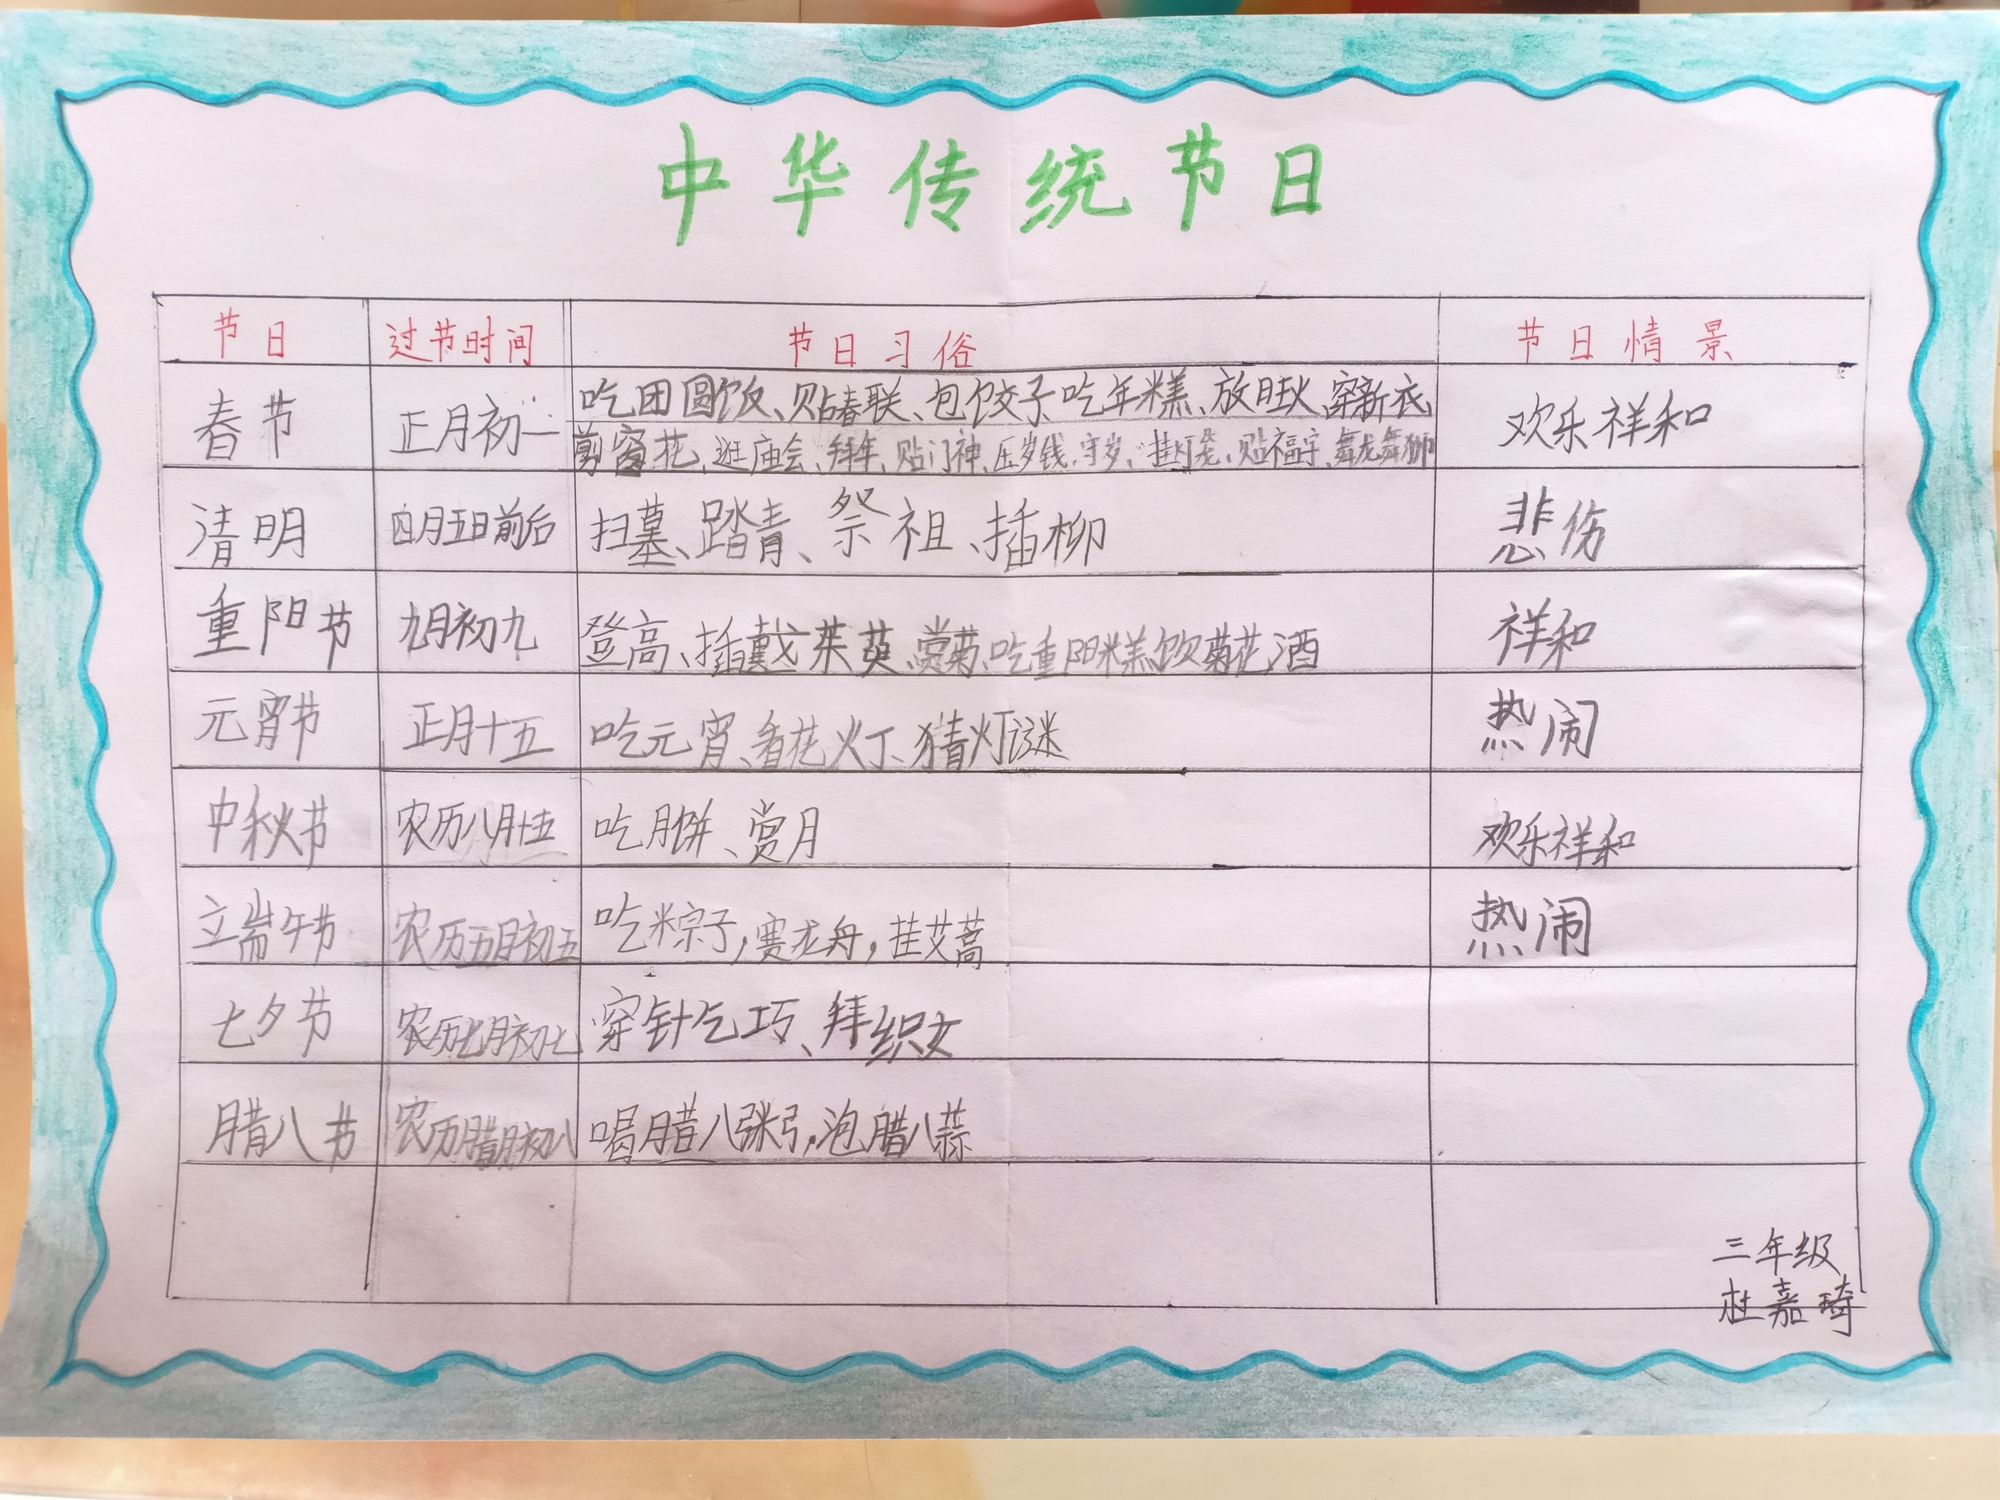 中华传统节日
节日 过节时间 节日习俗 节日情景
春节 正月初一 吃团圆饭、贴春联、包饺子、吃年糕、放旺火、穿新衣 欢乐祥和
剪窗花、逛庙会、拜年、贴门神、压岁钱、守岁、挂灯笼、贴福字、舞龙舞狮
清明 四月五日前后 扫墓、踏青、祭祖、插柳 悲伤
重阳节 九月初九 登高、插戴茱萸、赏菊、吃重阳糕、饮菊花酒 祥和
元宵节 正月十五 吃元宵、看花灯、猜灯谜 热闹
中秋节 农历八月十五 吃月饼、赏月 欢乐祥和
端午节 农历五月初五 吃粽子，赛龙舟，挂艾蒿 热闹
七夕节 农历七月初七 穿针乞巧、拜织女
腊八节 农历腊月初八 喝腊八粥，泡腊八蒜
三年级
杜嘉琦